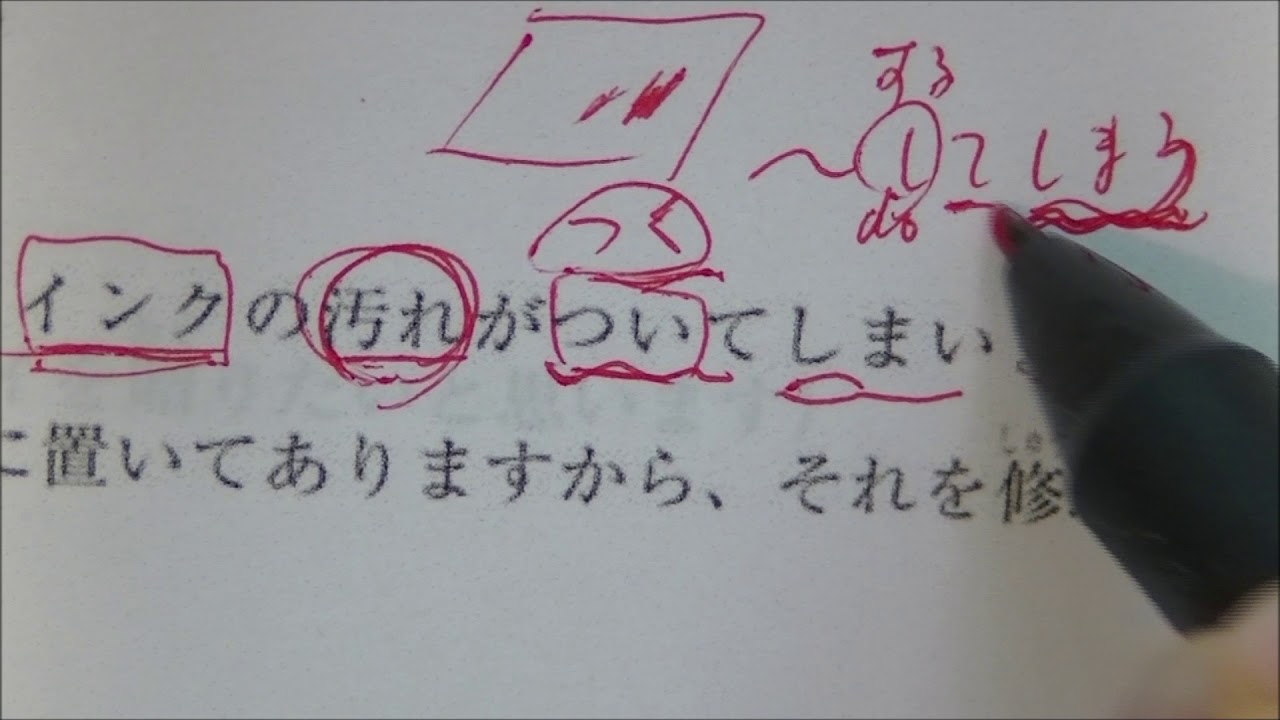 する
~してしまう
do
つく
インクの汚れがついてしまい
に置いてありますから、それを修